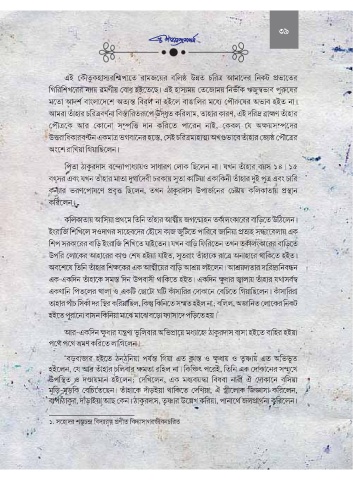 ৩৯
এই কৌতুকহাস্যরশ্মিপাতে রামজয়ের বলিষ্ঠ উন্নত চরিত্র আমাদের নিকট প্রভাতের
গিরিশিখরের ন্যায় রমণীয় বোধ হইতেছে। এই হাস্যময় তেজোময় নির্ভীক ঋজুস্বভাব পুরুষের
মতো আদর্শ বাংলাদেশে অত্যন্ত বিরল না হইলে বাঙালির মধ্যে পৌরুষের অভাব হইত না।
আমরা তাঁহার চরিত্রবর্ণনা বিস্তারিতরূপে উদ্‌ধৃত করিলাম, তাহার কারণ, এই দরিদ্র ব্রাহ্মণ তাঁহার
পৌত্রকে আর কোনো সম্পত্তি দান করিতে পারেন নাই, কেবল যে অক্ষয়সম্পদের
উত্তরাধিকারবণ্টন একমাত্র ভগবানের হস্তে, সেই চরিত্রমাহাত্ম্য অখণ্ডভাবে তাঁহার জ্যেষ্ঠ পৌত্রের
অংশে রাখিয়া গিয়াছিলেন।
পিতা ঠাকুরদাস বন্দ্যোপাধ্যায়ও সাধারণ লোক ছিলেন না। যখন তাঁহার বয়স ১৪।১৫
বৎসর এবং যখন তাঁহার মাতা দুর্গাদেবী চরকায় সুতা কাটিয়া একাকিনী তাঁহার দুই পুত্র এবং চারি
কন্যার ভরণপোষণে প্রবৃত্ত ছিলেন, তখন ঠাকুরদাস উপার্জনের চেষ্টায় কলিকাতায় প্রস্থান
করিলেন।
কলিকাতায় আসিয়া প্রথমে তিনি তাঁহার আত্মীয় জগন্মোহন তর্কালংকারের বাড়িতে উঠিলেন।
ইংরাজি শিখিলে সওদাগর সাহেবদের হৌসে কাজ জুটিতে পারিবে জানিয়া প্রত্যহ সন্ধ্যাবেলায় এক
শিপ-সরকারের বাড়ি ইংরাজি শিখিতে যাইতেন। যখন বাড়ি ফিরিতেন তখন তর্কালংকারের বাড়িতে
উপরি লোকের আহারের কাণ্ড শেষ হইয়া যাইত, সুতরাং তাঁহাকে রাত্রে অনাহারে থাকিতে হইত।
অবশেষে তিনি তাঁহার শিক্ষকের এক আত্মীয়ের বাড়ি আশ্রয় লইলেন। আশ্রয়দাতার দারিদ্র্যনিবন্ধন
এক-একদিন তাঁহাকে সমস্ত দিন উপবাসী থাকিতে হইত। একদিন ক্ষুধার জ্বালায় তাঁহার যথাসর্বস্ব
একখানি পিতলের থালা ও একটি ছোটো ঘটি কাঁসারির দোকানে বেচিতে গিয়াছিলেন। কাঁসারিরা
তাহার পাঁচ সিকা দর স্থির করিয়াছিল, কিন্তু কিনিতে সম্মত হইল না; বলিল, অজানিত লোকের নিকট
হইতে পুরানো বাসন কিনিয়া মাঝে মাঝে বড়ো ফ্যাসাদে পড়িতে হয়।
আর-একদিন ক্ষুধার যন্ত্রণা ভুলিবার অভিপ্রায়ে মধ্যাহ্নে ঠাকুরদাস বাসা হইতে বাহির হইয়া
পথে পথে ভ্রমণ করিতে লাগিলেন।
‘বড়বাজার হইতে ঠনঠনিয়া পর্যন্ত গিয়া এত ক্লান্ত ও ক্ষুধায় ও তৃষ্ণায় এত অভিভূত
হইলেন, যে আর তাঁহার চলিবার ক্ষমতা রহিল না। কিঞ্চিৎ পরেই, তিনি এক দোকানের সম্মুখে
উপস্থিত ও দণ্ডায়মান হইলেন; দেখিলেন, এক মধ্যবয়স্কা বিধবা নারী ঐ দোকানে বসিয়া
মুড়ি-মুড়কি বেচিতেছেন। তাঁহাকে দাঁড়াইয়া থাকিতে দেখিয়া, ঐ স্ত্রীলোক জিজ্ঞাসা করিলেন,
বাপাঠাকুর, দাঁড়াইয়া আছ কেন। ঠাকুরদাস, তৃষ্ণার উল্লেখ করিয়া, পানার্থে জলপ্রার্থনা করিলেন।
১. সহোদর শম্ভুচন্দ্র বিদ্যারত্ন প্রণীত বিদ্যাসাগরজীবনচরিত